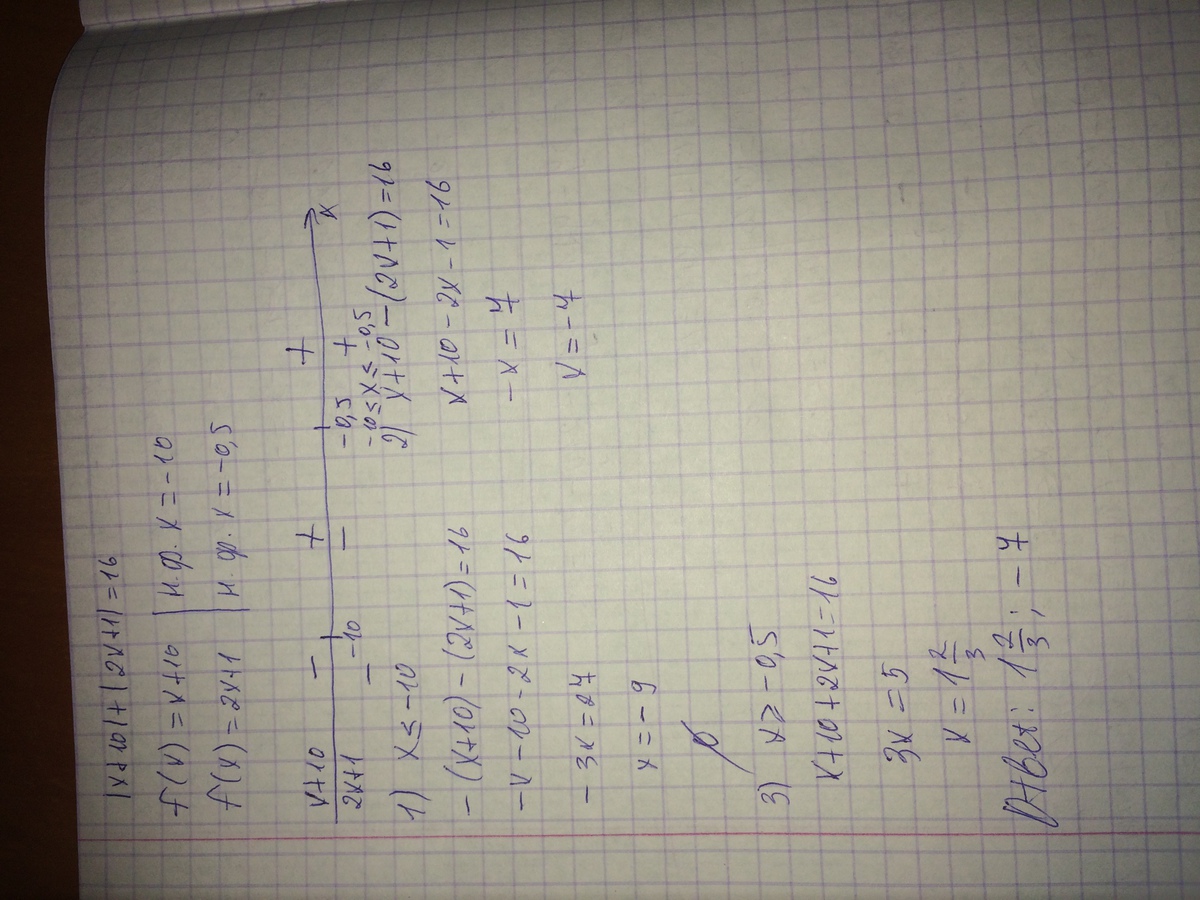 |x+10|+|2x+1|=16
f(x)=x+10 | н.ф. x=-10
f(x)=2x+1 | н.ф. x=-0,5
x+10 - + +
2x+1 - - +
-10 -0,5 x
1) x≤-10
-(x+10)-(2x+1)=16
-x-10-2x-1=16
-3x=27
x=-9
∅
-10≤x≤-0,5
2) x+10-(2x+1)=16
x+10-2x-1=16
-x=7
x=-7
3) x≥-0,5
x+10+2x+1=16
3x=5
x=1 2/3
Ответ: 1 2/3; -7